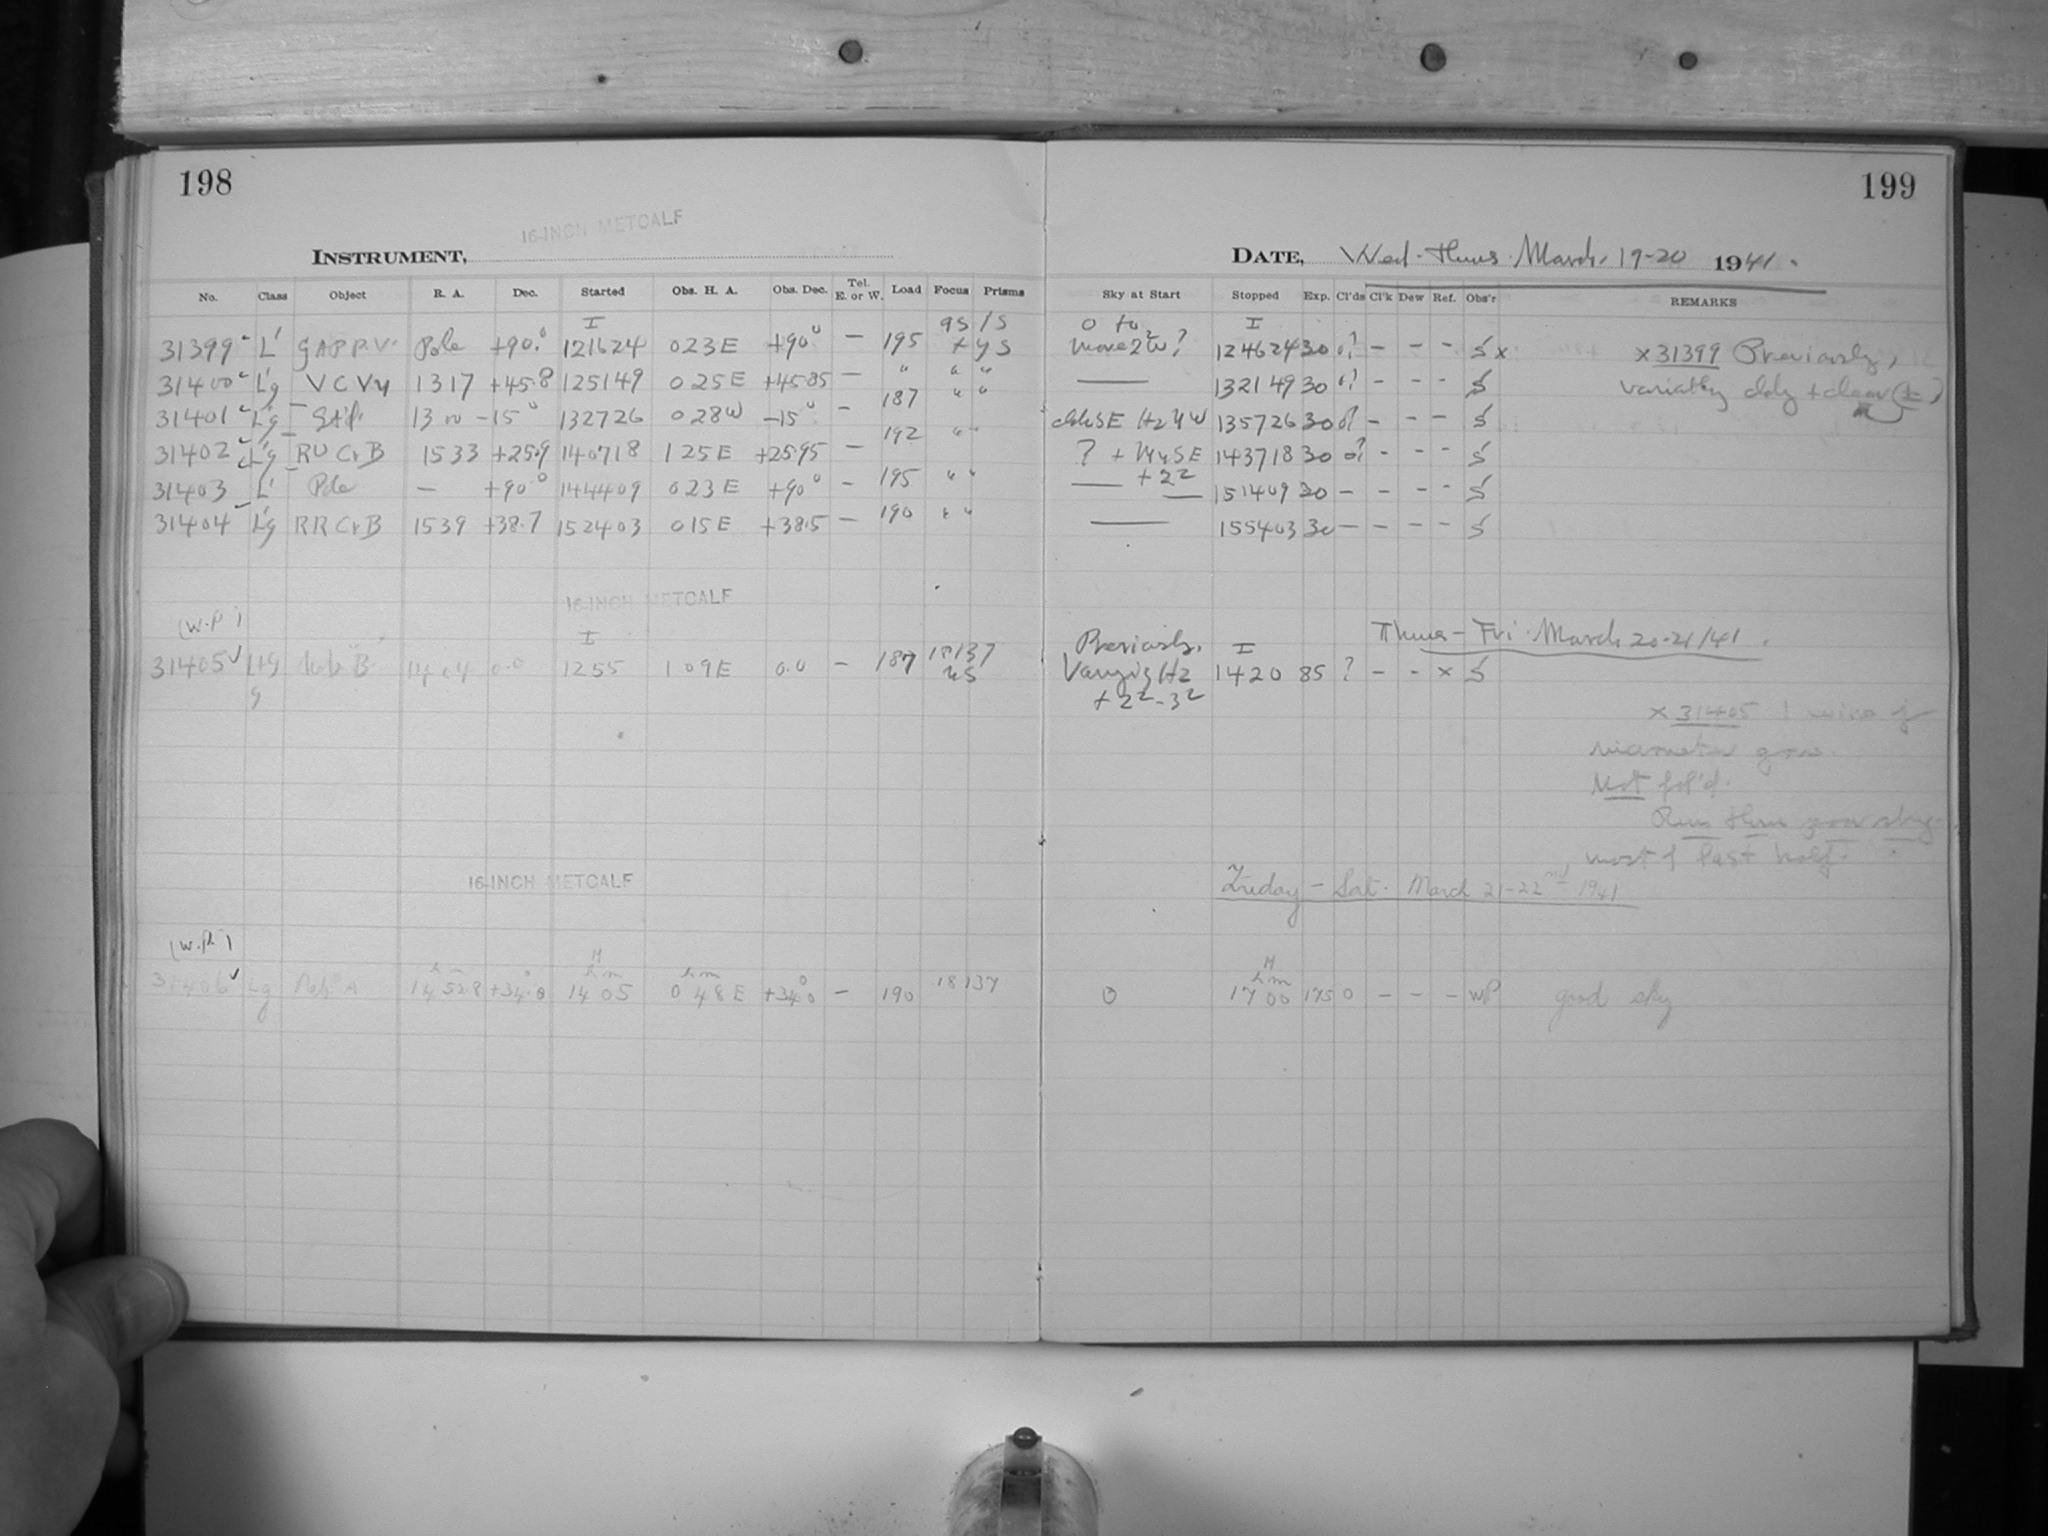 198
16-INCH METCALF
INSTRUMENT,
No. Class Object R. A. Dec. Started Obs. H. A. Obs. Dec. Tel. E. or W. Load Focus Prisms
31399 L' Pole +90.° 121624 023E +90° — 195
31400 L'g V C Vn 1317 +45.8 125149 025E +45.85 — " " "
31401 L'g 1300 -15° 132726 028W -15° - 187 " "
31402 L'g RU CrB 1533 +25.9 140718 125E +25.95 — 192 " "
31403 L' Pole — +90.° 144409 023E +90° - 195 " "
31404 L'g RR CrB 1539 +38.7 152403 015E +38.5 — 190 " "
16-INCH METCALF
(W.P.)
31405 1404 0.0 1255 1 09E 0.0 — 187 18137
16-INCH METCALF
(W.P.)
31406 Lg 14 52.8 +34.0 14 05 0 48E +34.0 — 190 18137
199
DATE, Wed-Thurs. March. 19-20 1941.
Sky at Start Stopped Exp. Cl'ds Cl'k Dew Ref. Obs'r REMARKS
124624 30 o? - - - S x x 31399 Previously,
— 132149 30 o? - - - S variably cldy + clear
135726 30 o? - - - S
143718 30 o? - - - S
+ 2² 151409 30 - - - - S
— 155403 30 - - - - S
Thurs-Fri. March 20-21/41.
Previously,
Varying Hz 1420 85 ? - - x S
+ 2² - 3²
x 31405 1 wire of
micrometer gone.
Not fol'd.
most of last half.
Friday - Sat. March 21-22nd 1941
0 17 00 175 0 - - - WP good sky